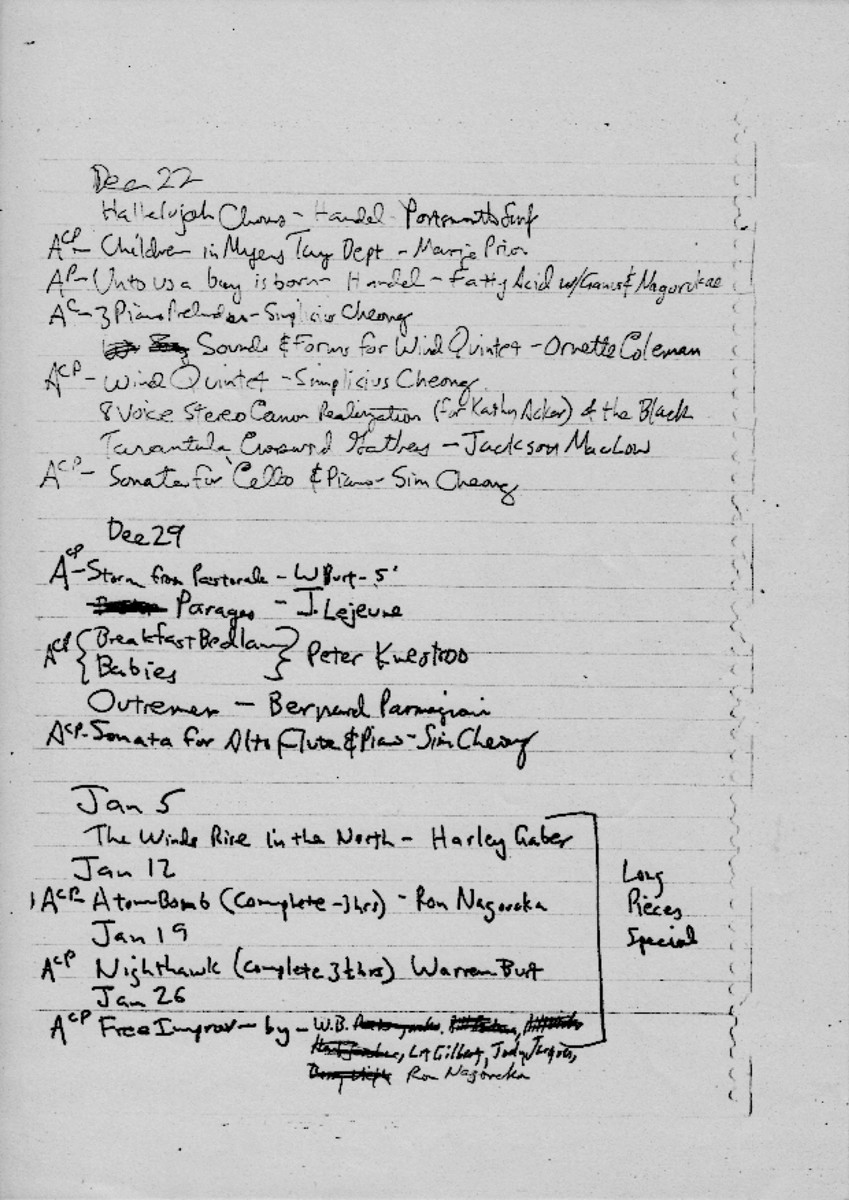 Dec 22
Hallelujah Chorus - Handel - Portsmouth Sinf
ACP - Children in Myers Toy Dept - Marjie Prior
AP - Unto us a boy is born - Handel - Fatty Acid w/ & Nagorcka
AC - 3 Piano Preludes - Simplicius Cheong
Sounds & Forms for Wind Quintet - Ornette Coleman
ACP - Wind Quintet - Simplicius Cheong
8 Voice Stereo Canon Realization (for Kathy Acker) & the Black
Tarantula Crossword Gathas - Jackson MacLow
ACP - Sonata for Cello & Piano - Sim Cheong
Dec 29
ACP - Storm from Pastorale - W Burt - 5'
Parages - J. Lejeune
ACP { Breakfast Bedlam } Peter
Babies
Outremer - Bernard Parmegiani
ACP - Sonata for Alto Flute & Piano - Sim Cheong
Jan 5
The Winds Rise in the North - Harley Gaber
Jan 12
ACP - Atom Bomb (Complete - 3 hrs) - Ron Nagorcka
Jan 19
ACP Nighthawk (Complete 3½ hrs) Warren Burt
Jan 26
ACP Free Improv - by - W.B.
Gilbert, Judy Jacques,
Ron Nagorcka
Long
Pieces
Special